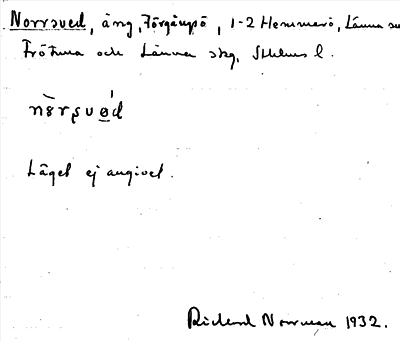 Norrsved, äng, Förgångsö, 1-2 Hemmarö, Länna sn
Frötuna och Länna skg, Sthlms l.
nòrsvǿd
Läget ej angivet.
Rickard Norrman 1932.